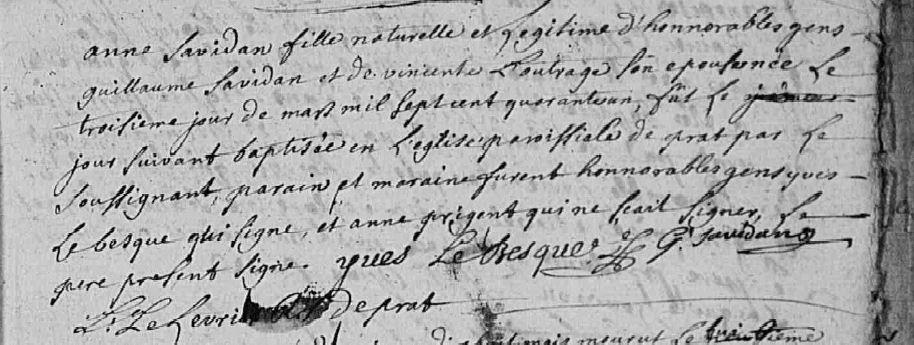 anne Savidan fille naturelle et Legitime d'honnorables gens
guillaume Savidan et de vincente L'outrage son epouse née Le
troisieme jour de mars mil sept cent quarante un, fût Le
jour suivant baptisée en L'eglise paroissiale de prat par Le
soussignant, parain et maraine furent honnorables gens yves
Le besque qui signe, et anne prigent qui ne scait signer, Le
pere present signe. yves Le Besquer G. Savidan
De prat
mourut Le